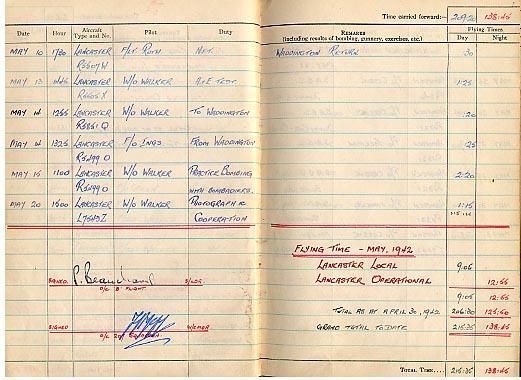 Time carried forward:— 209/20 138:45
Date Hour Aircraft Type and No. Pilot Duty REMARKS (including results of bombing, gunnery, exercises, etc.) Flying Times Day Night
MAY 10 LANCASTER F/LT. RUTH NET. WADDINGTON RETURN :30
R5507 W
MAY 13 LANCASTER W/O WALKER TEST. 1:25
X
MAY 14 1255 LANCASTER W/O WALKER TO WADDINGTON :20
Q
MAY 14 1325 LANCASTER F/O INGS FROM WADDINGTON :25
R5499 O
MAY 15 1100 LANCASTER W/O WALKER PRACTICE BOMBING 2:20
R5499 O WITH BOMBADIERS.
MAY 20 1500 LANCASTER W/O WALKER PHOTOGRAPHIC 1:15
Z COOPERATION
FLYING TIME - MAY, 1942
LANCASTER LOCAL 9:05
LANCASTER OPERATIONAL 12:55
9:05 12:55
TOTAL AS AT APRIL 30, 1942
GRAND TOTAL TO DATE 215:35 138:45
SIGNED P. Beauchamp S/LDR.
O/C 'B' FLIGHT
SIGNED W/CMDR.
O/C SQUADRON.
TOTAL TIME.... 215:35 138:45